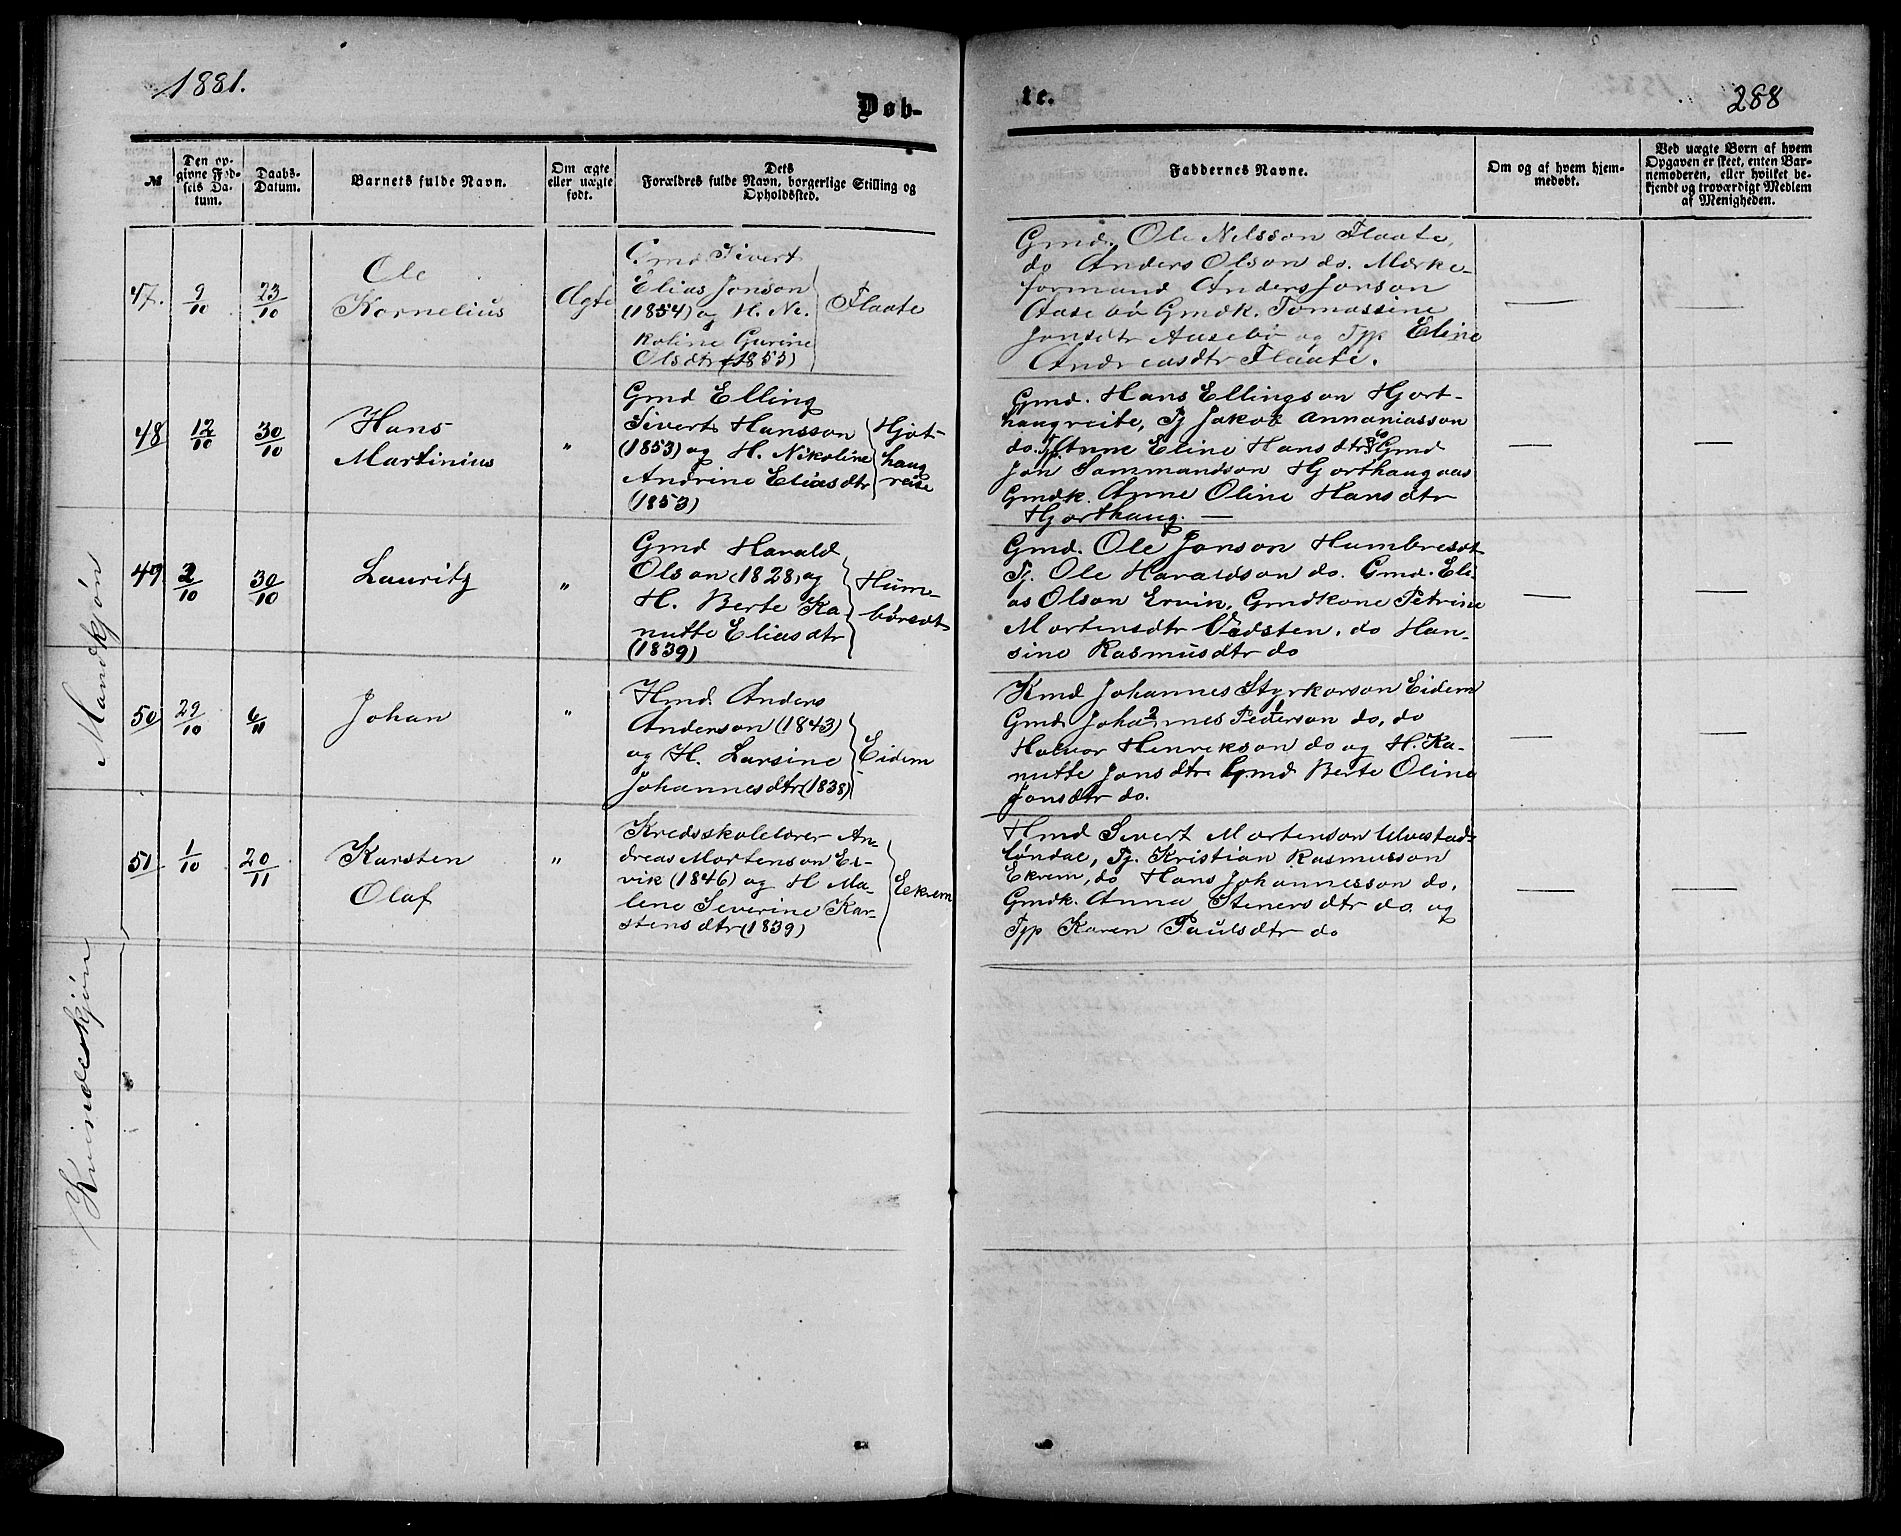 1881.
Døb-
te.
288
№
Den op-
givne Fød-
sels Da-
tum.
Daabs-
Datum.
Barnets fulde Navn.
Om ægte
eller uægte
født.
Dets
Forældres fulde Navn, borgerlige Stilling og
Opholdssted.
Faddernes Navne.
Om og af hvem hjem-
medøbt.
Ved uægte Børn af hvem
Opgaven er skeet, enten Bar-
nemoderen, eller hvilket be-
kjendt og troværdigt Medlem
af Menigheden.
Mandkjøn
47.
9/10
23/10
Ole
Kornelius
Ægte
Gmd Sivert
Elias Jonson
(1854) og H. Ne.
koline Gurine
Olsdtr (1853)
Flaate
Gmd. Ole Nilsson Flaate,
do Anders Olson do. Mærke-
formand Anders Jonson
Aasebø Gmdk. Tomassine
Jonsdtr Aasebø og Tjp Eline
Andreasdtr Flaate.
48
12/10
30/10
Hans
Martinius
"
Gmd Elling
Sivert Hansson
(1853) og H. Nikoline
Andrine Eliasdtr
(1853)
Hjot-
haug
reise
Gmd. Hans Ellingson Hjort-
haugreite, Tj Jakob Annaniasson
do. Anne Eline Hansdtr Gmd
Jon Sammundson Hjorthaug
Gmdk. Anne Oline Hansdtr
Hjorthaug. —
49
2/10
30/10
Lauritz
"
Gmd Harald
Olson (1828) og
H. Berte Ka
nutte Eliasdtr
(1839)
Hum-
børsæt
Gmd. Ole Jonson Humbresæt
Tj. Ole Haraldson do. Gmd. Eli-
as Olson Ervik, Gmdkone Petrine
Mortensdtr Vedsten. do Han-
sine Rasmusdtr do
50
29/10
6/11
Johan
"
Hmd. Anders
Anderson (1843)
og H. Larsine
Johannesdtr (1838)
Eidem
Kmd Johannes Styrkorson Eidem
Gmd. Johannes Pederson do, do
Halvor Henrikson do og H. Ka-
nutte Jonsdtr Gmd Berte Oline
Jonsdtr do.
51
1/10
20/11
Karsten
Olaf
"
Kredsskolelærer An-
dreas Mortenson Er-
vik (1846) og H Ma-
lene Severine Kar-
stensdtr (1839)
Eekrem
Hmd Sivert Mortenson Ulvestad-
løndal, Tj. Kristian Rasmusson
Ekrem, do Hans Johannesson do,
Gmdk. Anna Stenersdtr do og
Tjp Karen Paulsdtr do
Kvindeskjøn